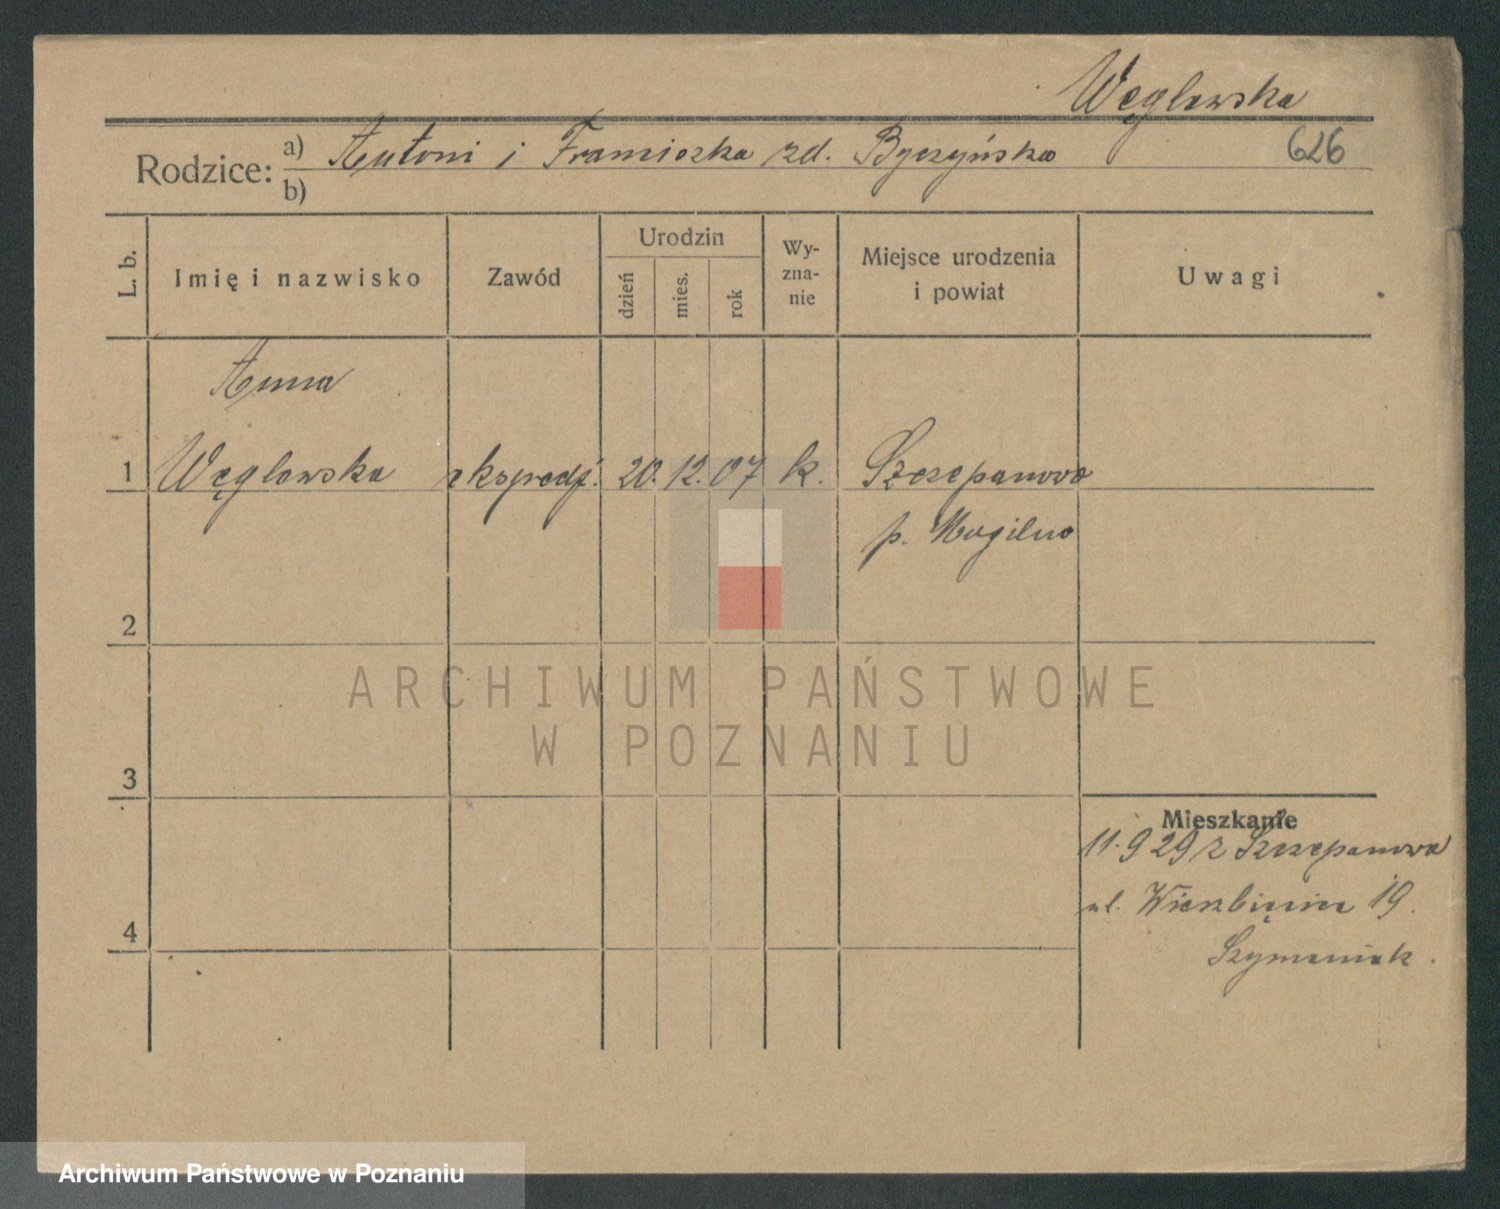 Węglewska
Rodzice: a) Antoni i Franciszka zd. Byczyńska 626
b)
L. b. Imię i nazwisko Zawód Urodzin dzień mies. rok Wy-zna-nie Miejsce urodzenia i powiat Uwagi
Anna
1 Węglewska ekspedj. 20. 12. 07 k. Szczepanowo
p. Mogilno
2
ARCHIWUM PAŃSTWOWE
W POZNANIU
3
Mieszkanie
11. 9 29 z Szczepanowa
ul. Wierzbięcice 19.
4
Szymaniak.
Archiwum Państwowe w Poznaniu